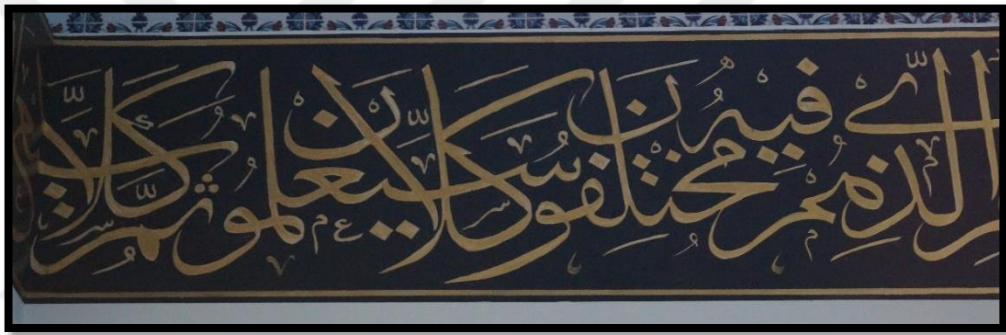 الَّذِي هُمْ فِيهِ مُخْتَلِفُونَ كَلَّا سَيَعْلَمُونَ ثُمَّ كَلَّا